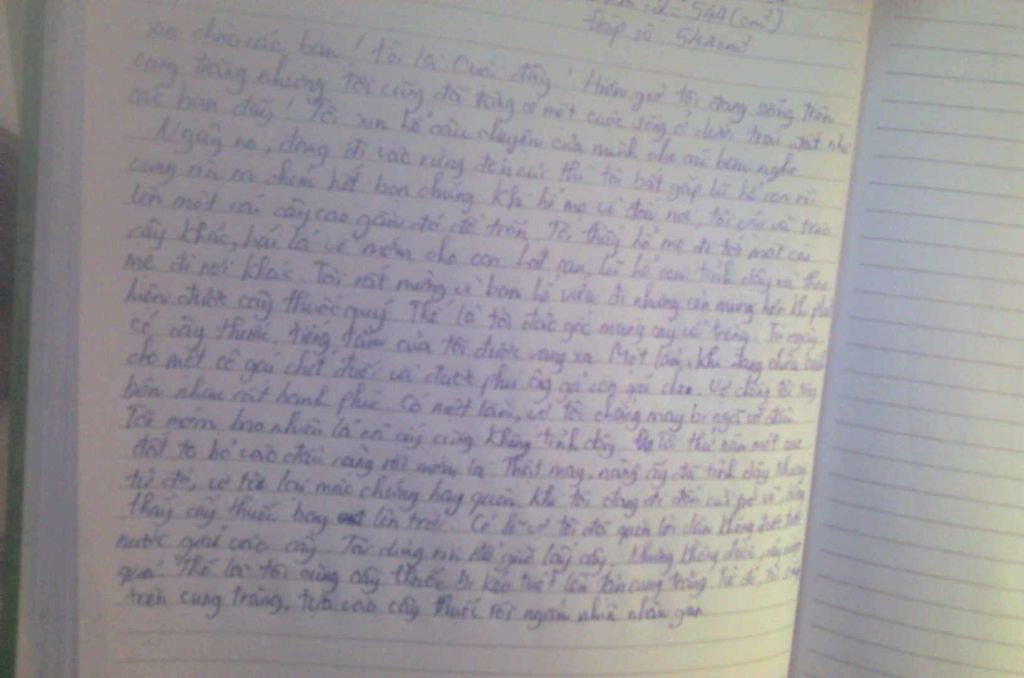 = 544 (cm³)
Đáp số 544cm³
xin chào các bạn! Tôi là Cuội đây! Hiện giờ tôi đang sống trên
cung trăng nhưng tôi cũng đã từng có một cuộc sống ở dưới trái đất như
các bạn đấy! Tôi xin kể câu chuyện của mình cho các bạn nghe
Ngày nọ, đang đi vào rừng đốn củi thì tôi bắt gặp lũ hổ con tôi
vung rìu ra chém hết bọn chúng. Khi hổ mẹ về tới nơi, tôi vội và trèo
lên một cái cây cao gần đó để trốn. Tôi thấy hổ mẹ đi tới một cái
cây khác, hái lá về mớm cho con. Lát sau, lũ hổ con tỉnh dậy và theo
mẹ đi nơi khác. Tôi rất mừng vì bọn hổ vừa đi nhưng còn mừng hơn khi phát
hiện được cây thuốc quý. Thế là tôi đào gốc mang cây về trồng. Từ ngày
có cây thuốc, tiếng tăm của tôi được vang xa. Một lần, khi đang chữa
cho một cô gái chết đuối và được phú ông gả con gái cho. Vợ chồng tôi sống
bên nhau rất hạnh phúc. Có một lần, vợ tôi chẳng may bị ngã vỡ đầu
Tôi mớm bao nhiên lá mà cây cũng không tỉnh dậy. tôi thử nặn một
đất to bỏ vào đầu nàng rồi mớm lá. Thật may, nàng ấy đã tỉnh dậy. Nhưng
từ đó, vợ tôi lại mắc chứng hay quên. Khi tôi đang đi đốn củi về
thấy cây thuốc bay lên trời. Có lẽ vợ tôi đã quên lời dặn không được tưới
nước giải vào cây. Tôi dùng rìu để giữ lấy cây. Nhưng không được,
quá. Thế là tôi cùng cây thuốc bị kéo tuột lên tận cung trăng. Từ đó, tôi sống
trên cung trăng, tựa vào cây thuốc rồi ngắm nhìn nhân gian